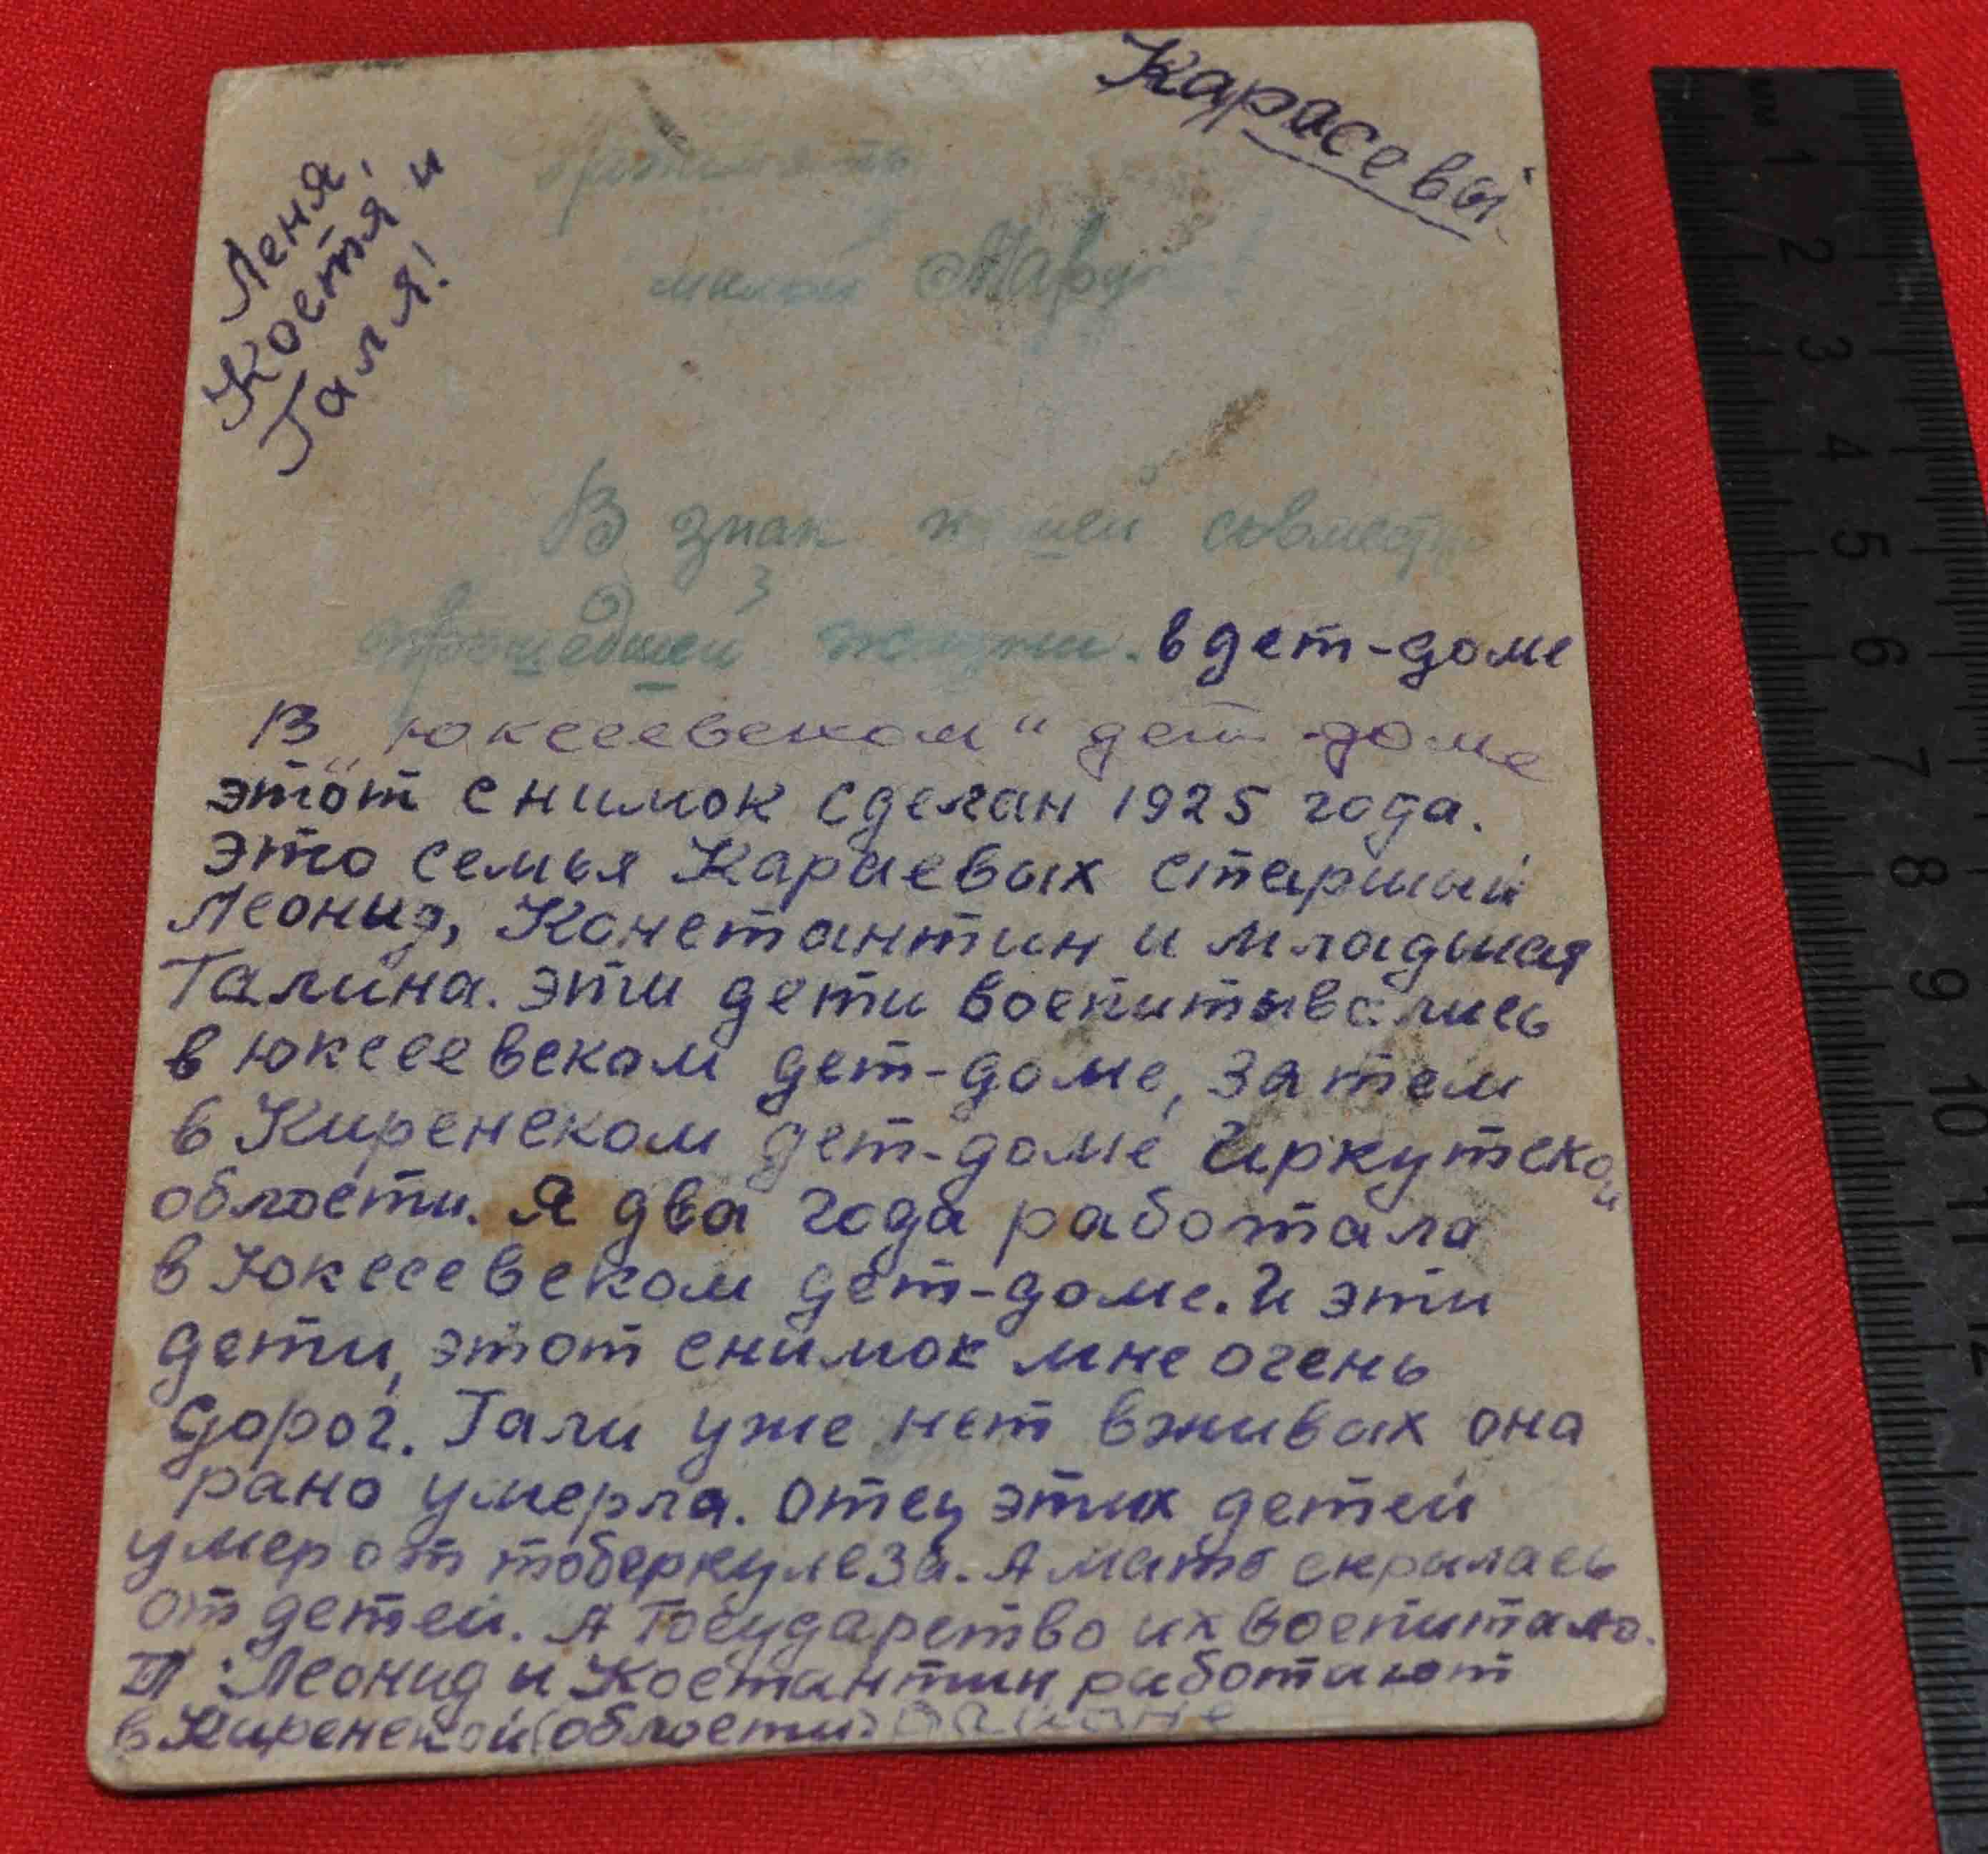 Карасевы
Леня,
Костя и
Галя!
милой
В знак нашей совместно
прошедшей жизни. в дет-доме
В „юксеевском“ дет-доме
этот снимок сделан 1925 года.
это семья Караевых старший
Леонид, Константин и младшая
Галина. эти дети воспитывались
в юксеевском дет-доме, затем
в Киренском дет-доме Иркутской
облости. Я два года работала
в Юксеевском дет-доме. И эти
дети, этот снимок мне очень
дорог. Гали уже нет вживых она
рано умерла. отец этих детей
умер от тоберкулеза. А мать скрылась
от детей. А Государство их воспитало.
Леонид и Костантин работают
в Киренской (облости)